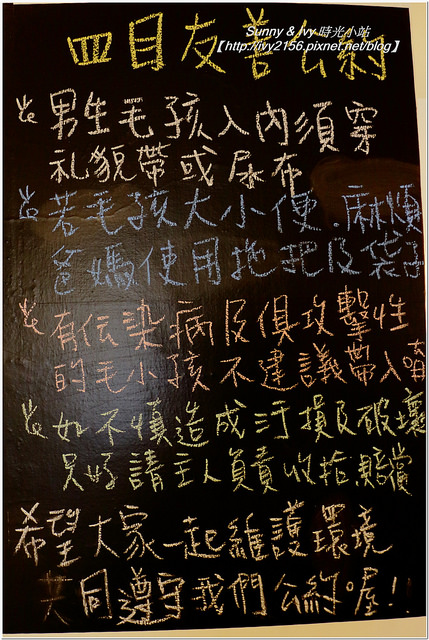 Sunny & Ivy 時光小站
【http://ivy2156.pixnet.net/blog】
四目友善公約
男生毛孩入內須穿
礼貌帶或尿布
若毛孩大小便.麻煩
爸媽使用拖把及袋子
有伝染病及俱攻擊性
的毛小孩不建議帶入唷
如不慎造成汙損及破壞
只好請主人負責收拾賠償
希望大家一起維護環境
共同遵守我們公約喔!!